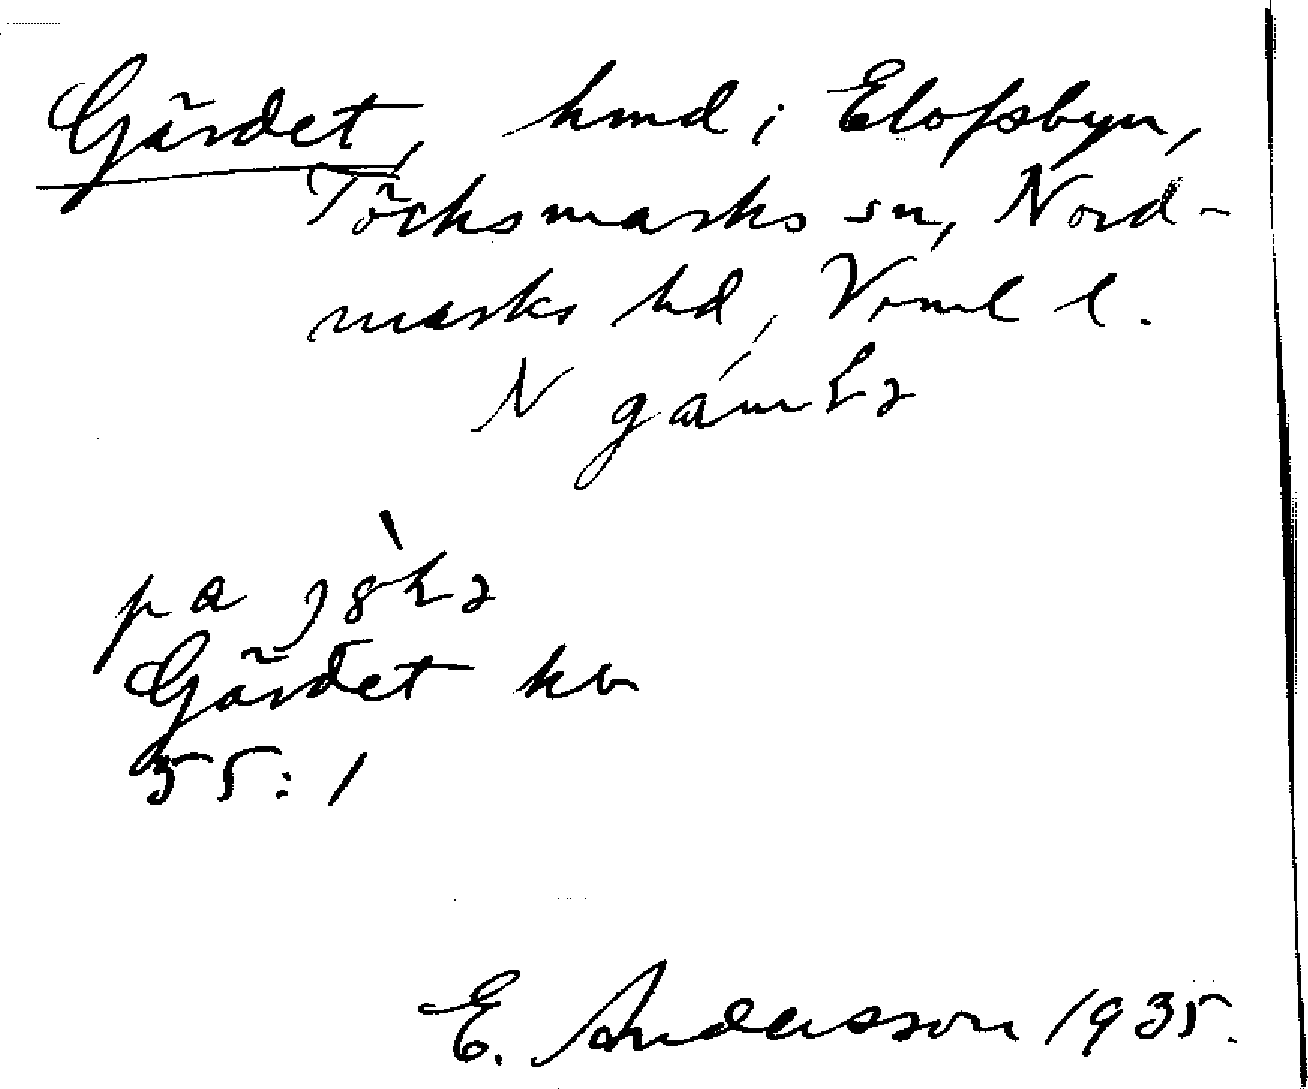 Gärdet, hmd i Elofsbyn,
Töcksmarks sn, Nord-
marks hd, Vrml l.
N
på
Gärdet kv
55:1
E. Andersson 1935.